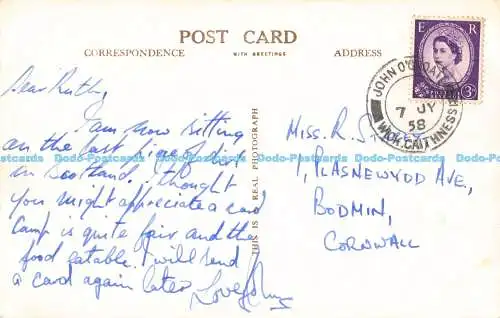 POST CARD
CORRESPONDENCE
WITH GREETINGS
ADDRESS
E R
3D
JOHN O'GROATS
7 JY
58
WICK, CAITHNESS
THIS IS A REAL PHOTOGRAPH
Dear Ruth,
I am now sitting
on the last piece of dirt
in Scotland. I thought
you might appreciate a card
Camp is quite fair and the
food eatable. I will send
a card again later Love John
Miss. R. S
1, PLASNEWYDD AVE,
BODMIN,
CORNWALL
Dodo-Postcards Dodo-Postcards Dodo-Postcards Dodo-Postcards